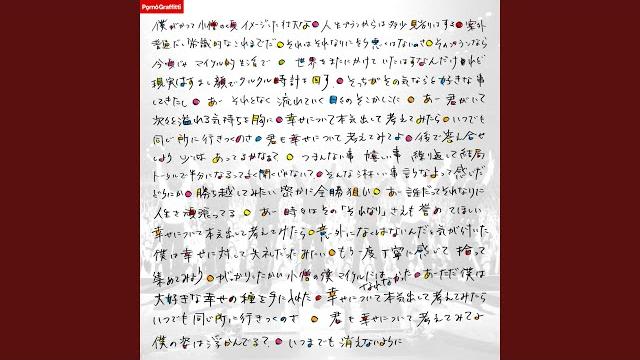 PornoGraffitti
僕がかつて小僧の頃イメージした壮大な●人生プランからは多少見劣りはする●案外
普通だし常識的なこれまでだ●それはそれなりにそう悪くはないのさ●そのプランなら
今頃じゃマイケル的生活で●世界をまたにかけていたはずなんだけれど
現実はすまし顔でクルクル時計を回す●そっちがその気ならと好きな事
してきたし●あー それとなく流れていく日々のそこかしこに●あー 君がいて
次々溢れる気持ちを胸に●幸せについて本気出して考えてみたら●いつでも
同じ所に行きつくのさ●君も幸せについて考えてみてよ●後で答え合せ
しよう 少しは あってるかなぁ?●つまんない事 嬉しい事 繰り返して結局
トータルで半分になるってよく聞くじゃない?●そんな淋しい事言うなよって感じだ
どうにか●勝ち越してみたい 密かに全勝狙い●あー 誰だってそれなりに
人生を頑張ってる●あー 時々はその「それなり」さえも誉めてほしい
幸せについて本気出して考えてみたら●意外になくはないんだと気が付いた
僕は幸せに対して失礼だったみたい●もう一度丁寧に感じて拾って
集めてみよう●がっかりしたかい小僧の僕マイケルにはなれなかった●あーただ僕は
大好きな幸せの種を手に入れた●幸せについて本気出して考えてみたら
いつでも同じ所に行きつくのさ●君も幸せについて考えてみてよ
僕の姿は浮かんでる?●いつまでも消えないように